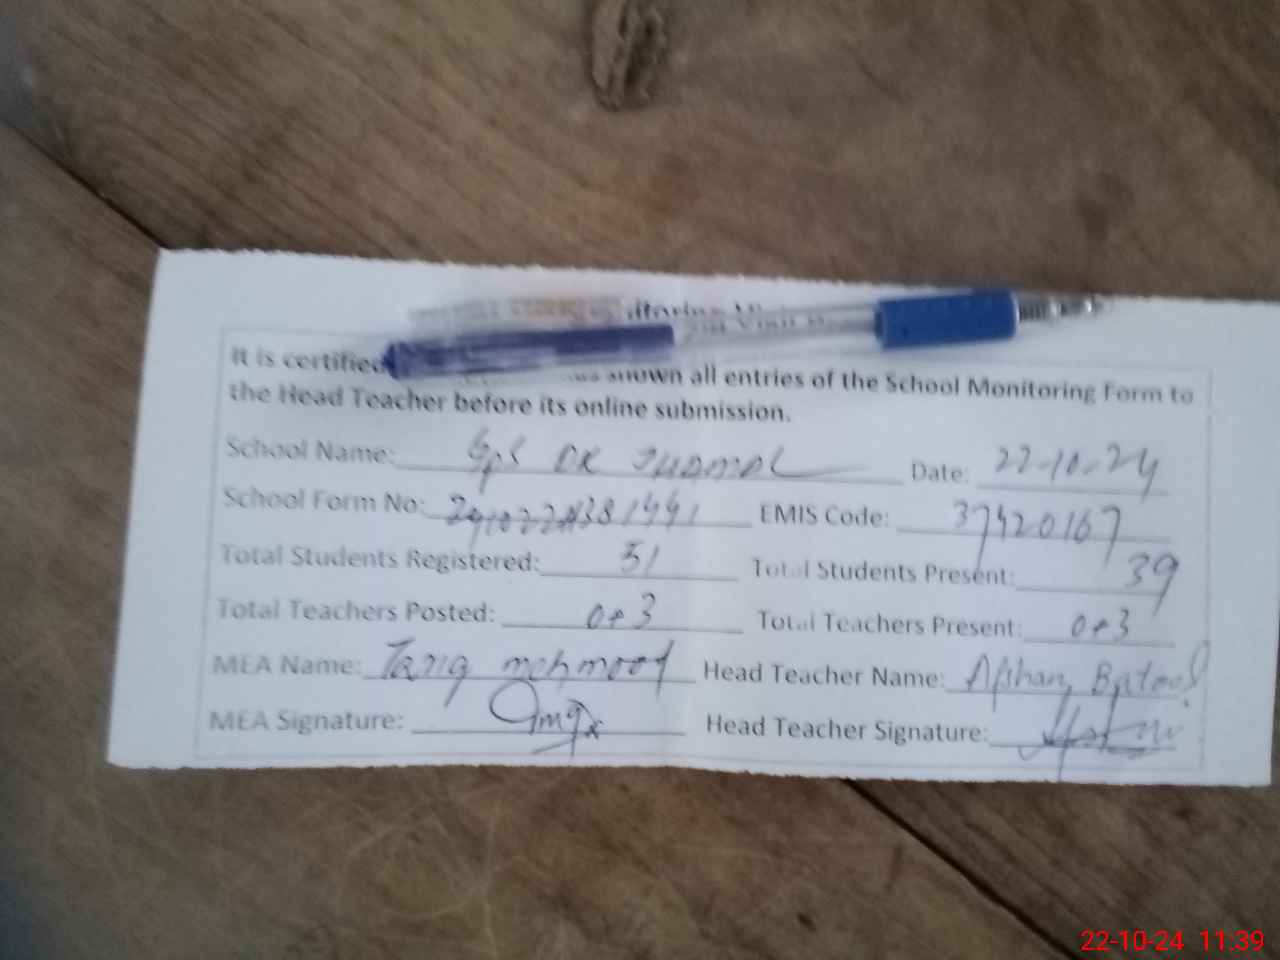 It is certified shown all entries of the School Monitoring Form to
the Head Teacher before its online submission.
School Name: GPS DK Date: 22-10-24
School Form No: EMIS Code: 37420167
Total Students Registered: 51 Total Students Present: 39
Total Teachers Posted: 0+3 Total Teachers Present: 0+3
MEA Name: Tariq mehmood Head Teacher Name: Afshan Batool
MEA Signature: Head Teacher Signature:
22-10-24 11:39